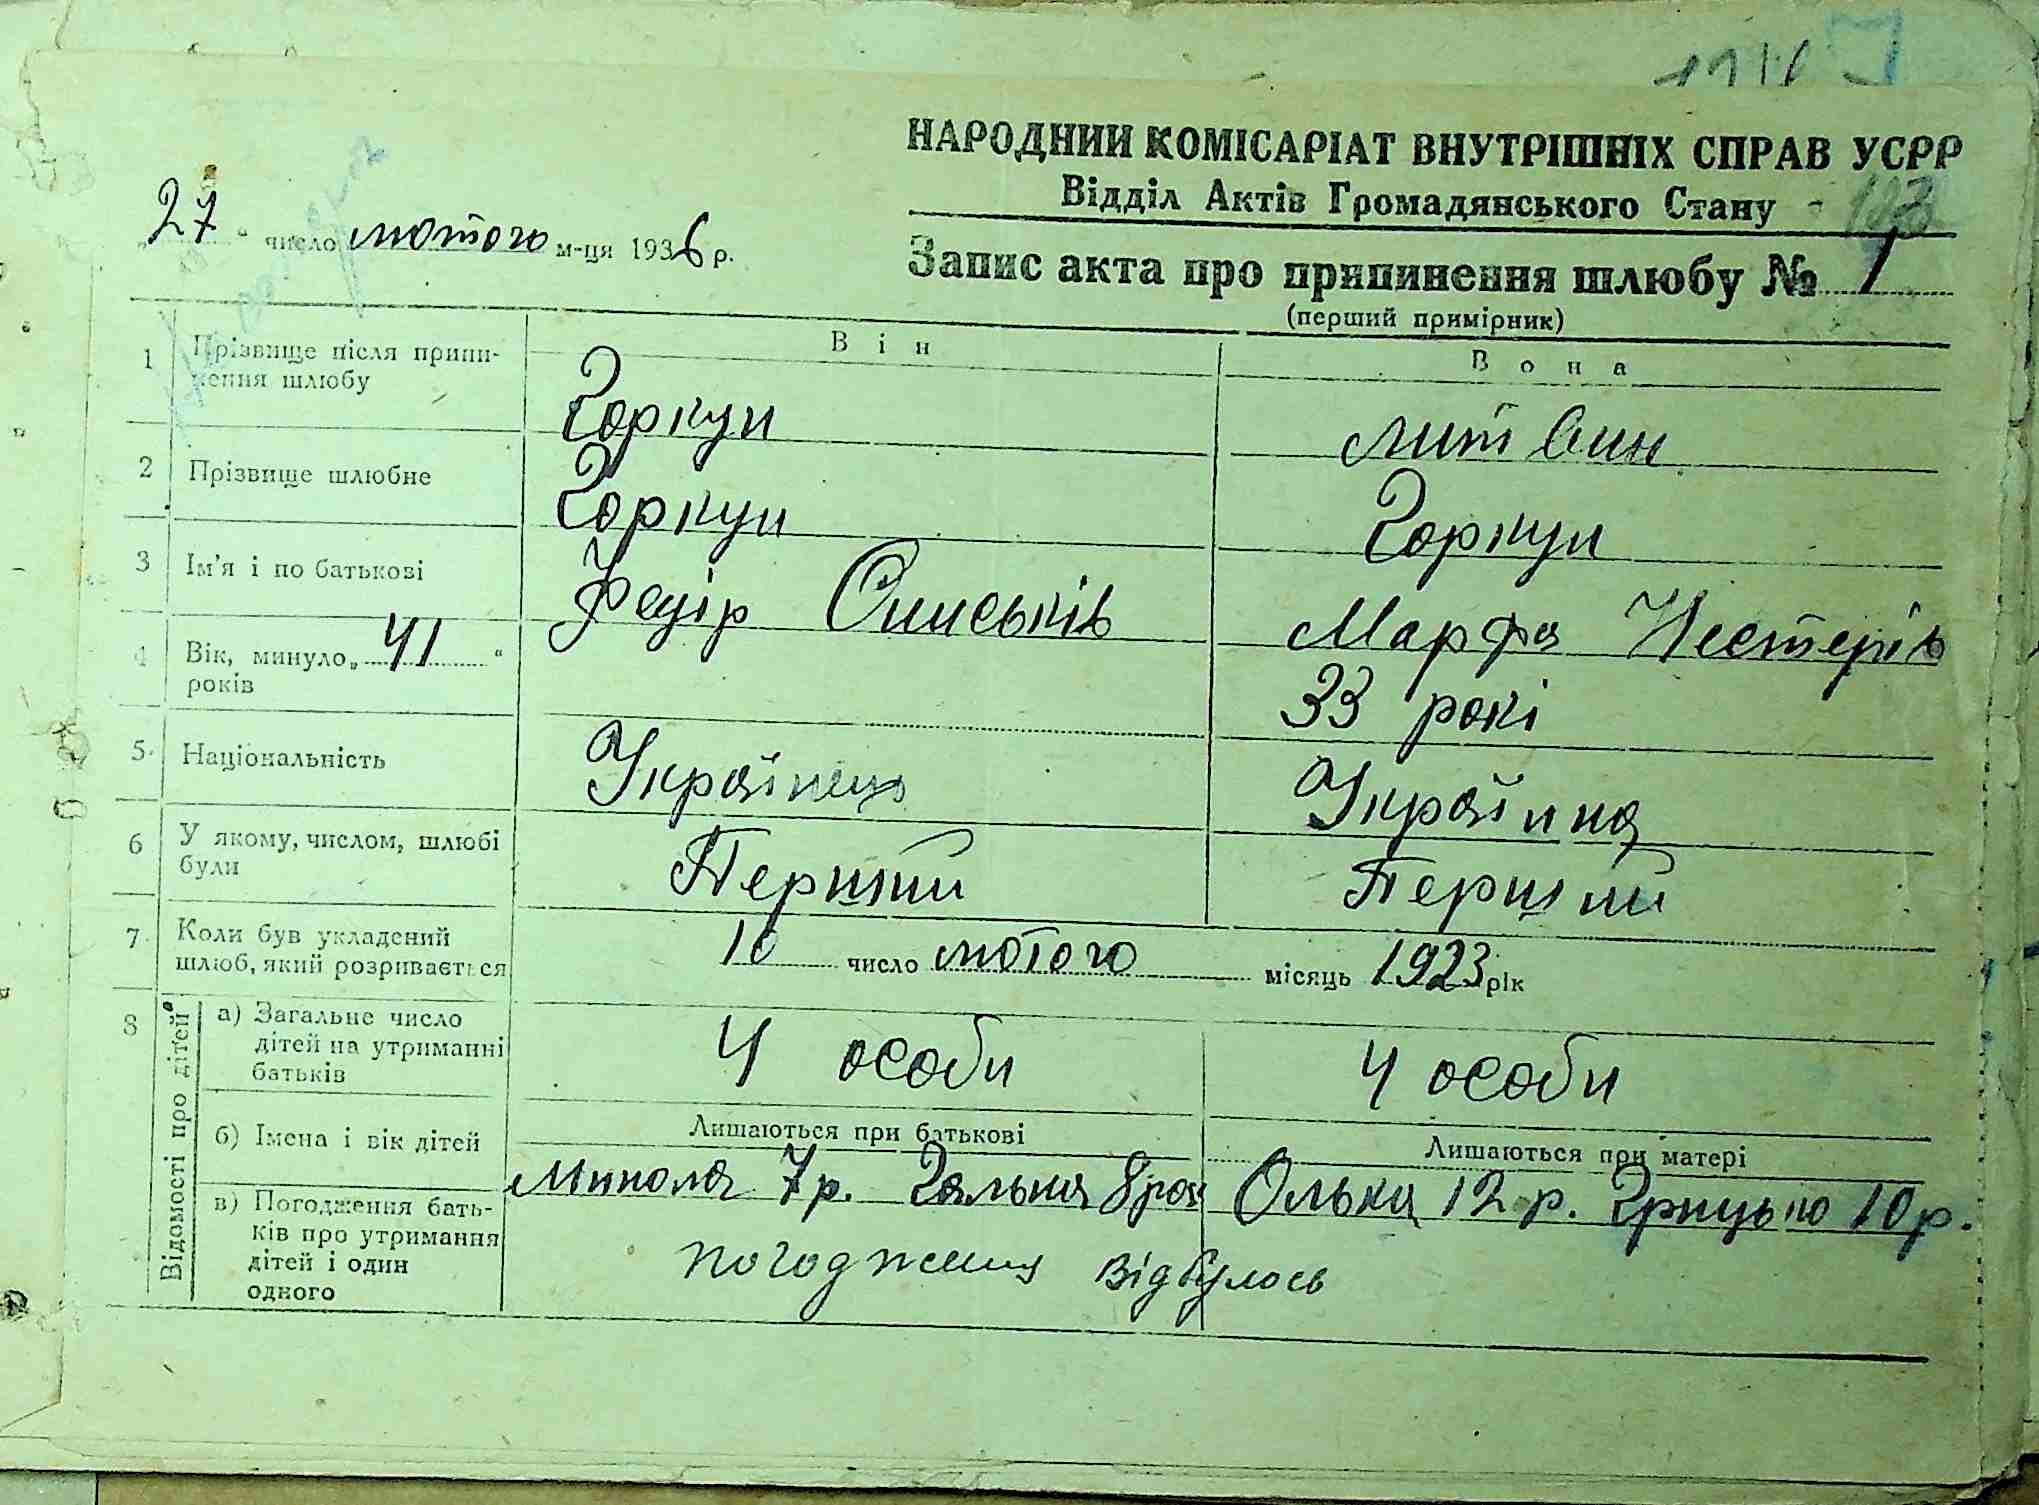 НАРОДНИЙ КОМІСАРІАТ ВНУТРІШНІХ СПРАВ УСРР
Відділ Актів Громадянського Стану
„27“ число лютого м-ця 1936 р.
Запис акта про припинення шлюбу № 1
(перший примірник)
Він Вона
1 Прізвище після припинення шлюбу Горкун Литвин
2 Прізвище шлюбне Горкун Горкун
3 Ім'я і по батькові Федір Марфа Нестерів
4 Вік, минуло „41“ років 33 рокі
5 Національність Українець Украінка
6 У якому, числом, шлюбі були Перший Перший
7 Коли був укладений шлюб, який розривається 10 число лютого місяць 1923 рік
8 Відомості про дітей
а) Загальне число дітей на утриманні батьків 4 особи 4 особи
б) Імена і вік дітей Лишаються при батькові Лишаються при матері
Микола 7 р. Галька 8 рок Олька 12 р. Грицько 10 р.
в) Погодження батьків про утримання дітей і один одного погодження відбулось